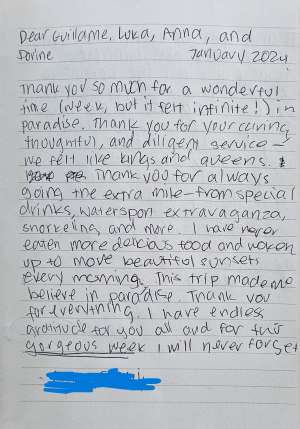 Dear Guillame, Luka, Anna, and
Dorine January 2024
Thank you so much for a wonderful
time (week, but it felt infinite!) in
paradise. Thank you for your cunning,
thoughtful, and diligent service -
we felt like kings and queens. I
Thank you for always
going the extra mile - from special
drinks, waterspori extravaganza,
snorkeling, and more. I have never
eaten more delicious food and woken
up to more beautiful sunsets
every morning. This trip made me
believe in paradise. Thank you
for everything. I have endless
gratitude for you all and for this
gorgeous week I will never forget